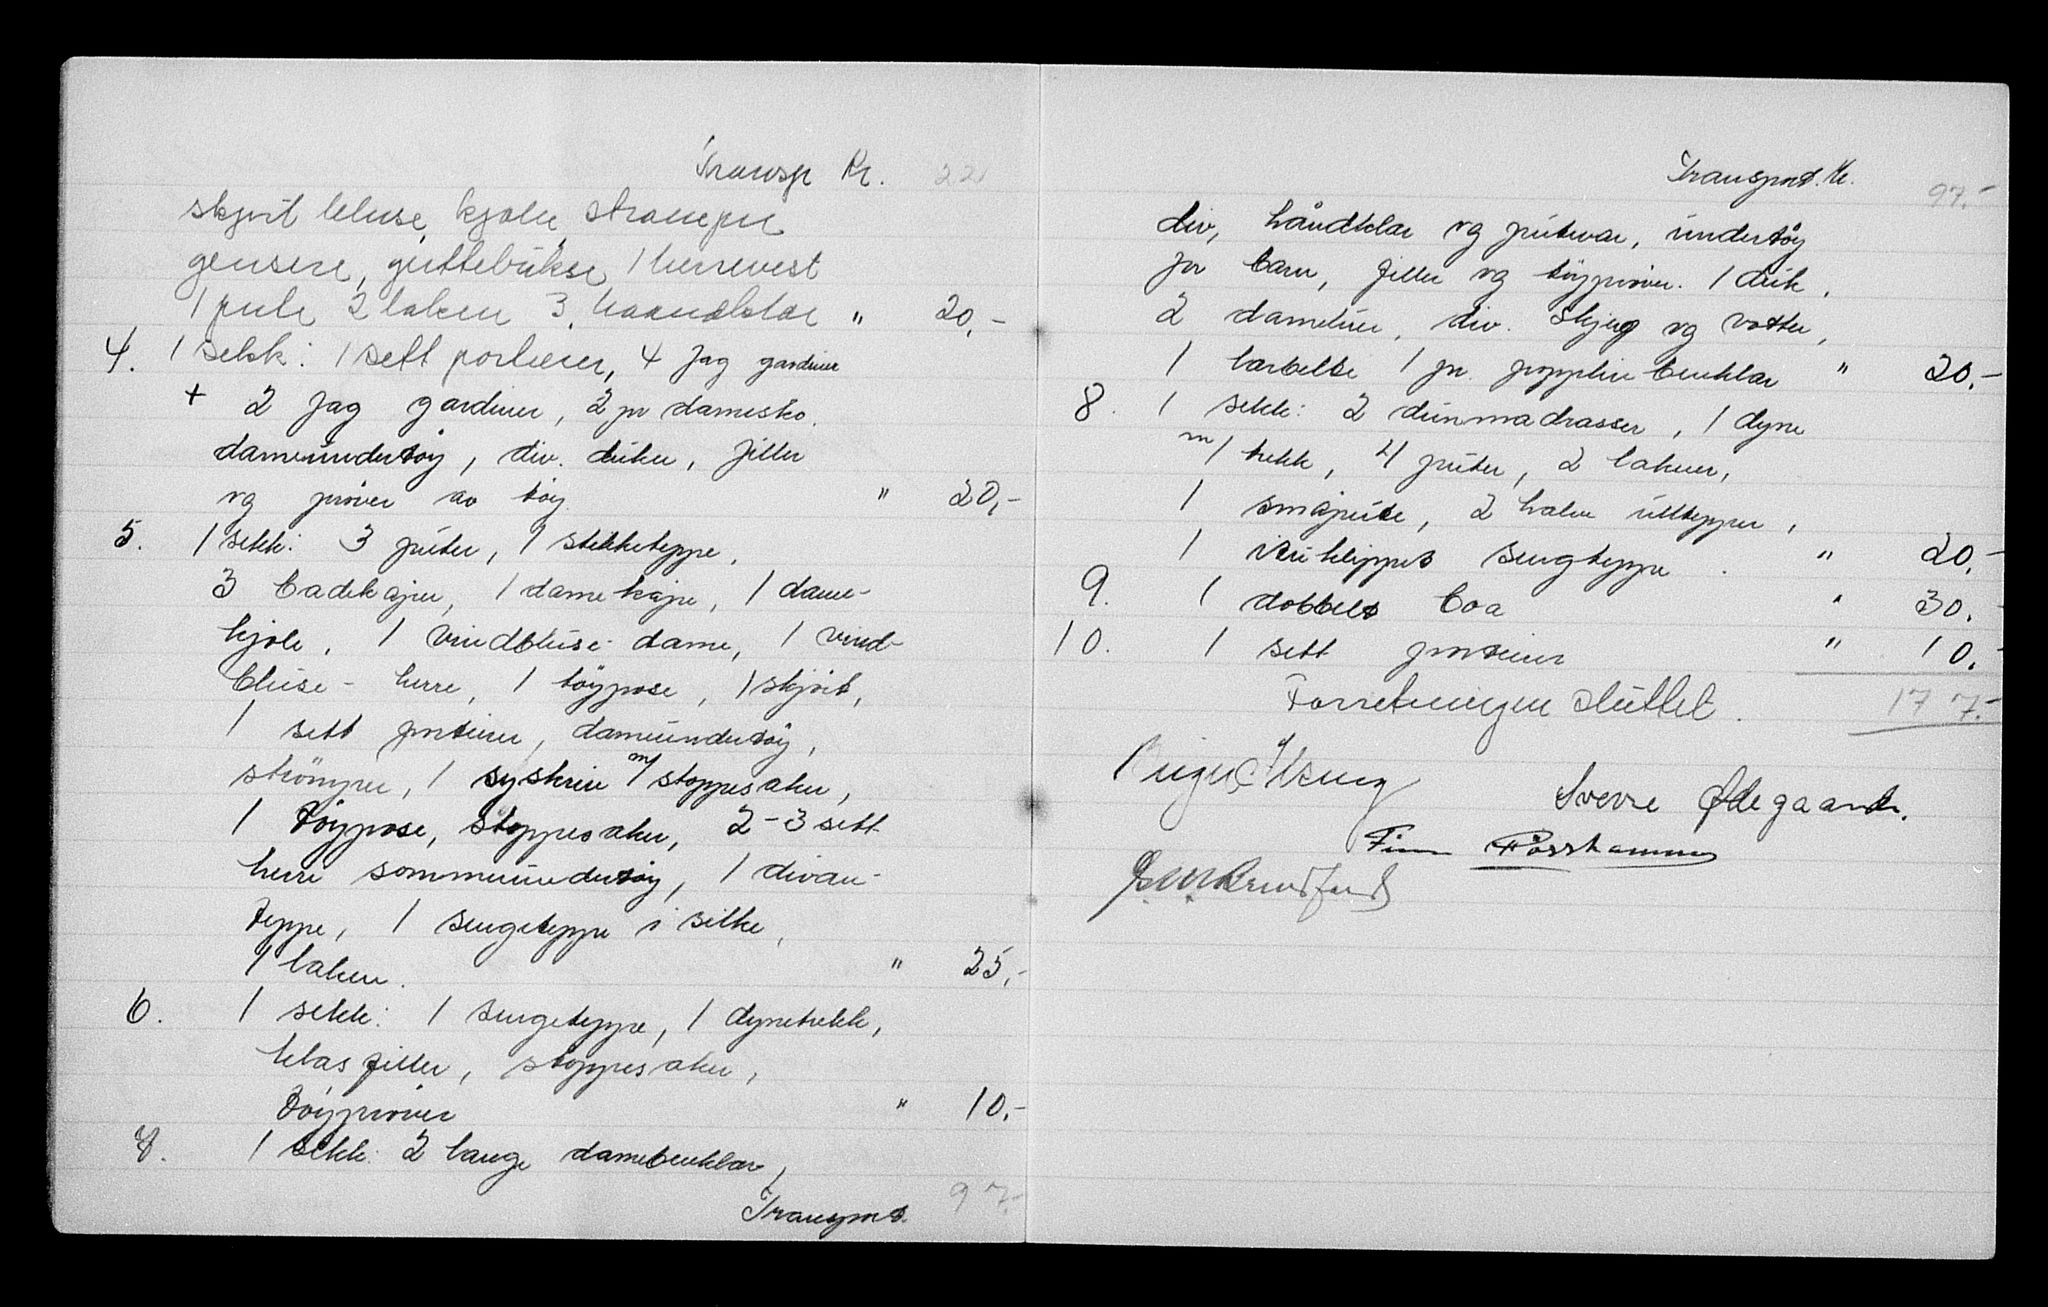 Transp Kr. 22
skjört bluse, kjole, strömper
gensere, guttebukse, 1 herrevest
1 pute 2 laken 3 haandklær " 20,-
4. 1 sekk: 1 sett portierer, 4 fag gardiner
+ 2 fag gardiner, 2 pr damesko.
dameundertöy, div. duker, filler
og pröver av töy " 20,-
5. 1 sekk: 3 puter, 1 stikketeppe,
3 badekåper, 1 damekåpe, 1 dame-
kjole, 1 vindbluse-dame, 1 vind-
bluse - herre, 1 töypose, 1 skjört,
1 sett portierer, dameundertöy,
strömper, 1 syskrin m/ stoppesaker,
1 töypose, stoppesaker, 2-3 sett
herre sommerundertöy, 1 divan-
teppe, 1 sengeteppe i silke,
1 laken. " 25,-
6. 1 sekk: 1 sengeteppe, 1 dynetrekk,
klasfiller, stoppesaker,
töypröver " 10,-
7. 1 sekk: 2 lange damebenklær,
Transport. 97.-
Transport. Kr. 97.-
div, håndklær og putevar, undertöy
for barn, filler og töypröver. 1 duk,
2 dameluer, div. skjerf og votter,
1 1 pr. popplin benklær " 20.-
8. 1 sekk: 2 dunmadrasser, 1 dyne
m/ trekk, 4 puter, 2 lakner,
1 småpute, 2 halve ulltepper,
1 sengteppe. " 20,-
9. 1 dobbelt boa " 30.-
10. 1 sett portierer " 10.-
Forretningen sluttet. 177.-
Sverre Ødegaard.
Finn